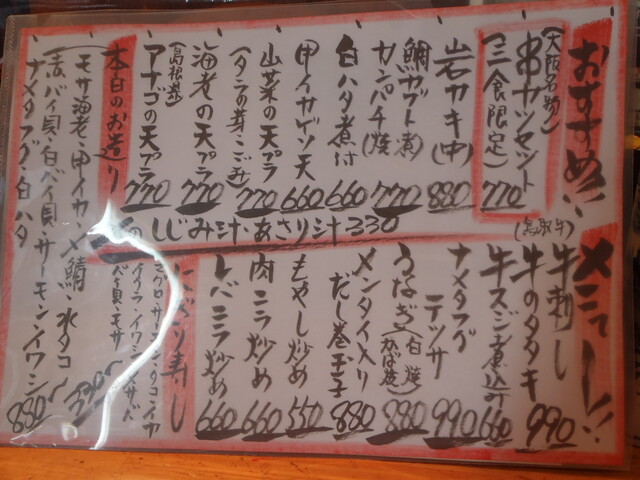 おすすめ!!メニュー!!
(大阪名物)
串カツセット 770
(三食限定)
岩カキ(中) 880
鯛カブト(煮)
カンパチ(焼) 770
白ハタ煮付 660
甲イカゲソ天 660
山菜の天プラ 770
(タラの芽・こごみ)
海老の天プラ 770
(島根県)
アナゴの天プラ 770
しじみ汁・あさり汁 330
(鳥取牛)
牛刺し
牛のタタキ 990
牛スジ煮込み 660
ナメタフグ
テッサ 990
うなぎ(白焼
かば焼) 880
メンタイ入り
だし巻玉子 880
もやし炒め 550
肉ニラ炒め 660
レバニラ炒め 660
にぎり寿し
マグロ・サーモン・タコ・イカ
バイ貝・モサ
本日のお造り
モサ海老・甲イカ・〆鯖・水タコ
赤バイ貝・白バイ貝・サーモン・イワシ
ナメタフグ・白ハタ 880